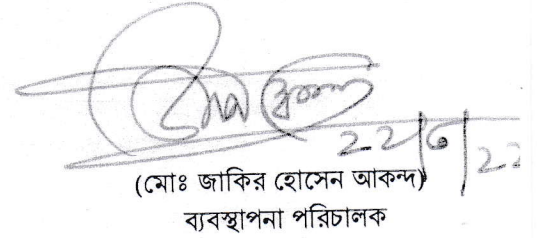 ২২/৩/২২
(মোঃ জাকির হোসেন আকন্দ)
ব্যবস্থাপনা পরিচালক